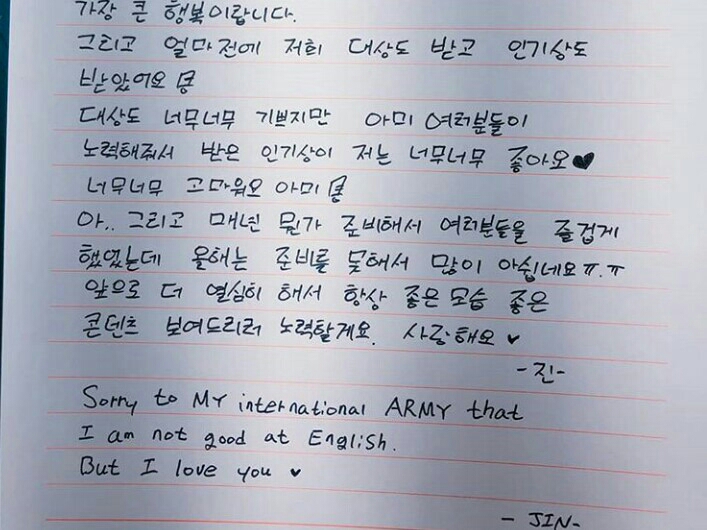 가장 큰 행복이랍니다.
그리고 얼마전에 저희 대상도 받고 인기상도
받았어요
대상도 너무너무 기쁘지만 아미 여러분들이
노력해줘서 받은 인기상이 저는 너무너무 좋아요♥
너무너무 고마워요 아미
아.. 그리고 매년 뭔가 준비해서 여러분들을 즐겁게
했었는데 올해는 준비를 못해서 많이 아쉽네요ㅠ.ㅠ
앞으로 더 열심히 해서 항상 좋은모습 좋은
콘텐츠 보여드리러 노력할게요. 사랑해요 ♥
-진-
Sorry to MY international ARMY that
I am not good at English.
But I love you ♥
- JIN-